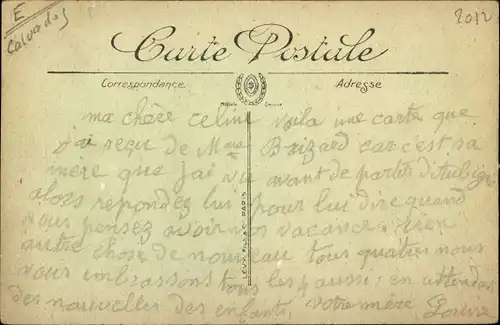 E
Calvados
2012
Carte Postale
Correspondance
Adresse
LEVY FILS & Cie PARIS
ma chère celine voila une carte que
j'ai reçu de Mme Brizard car c'est sa
mère que j'ai vu avant de partir
alors repondez lui pour lui dire quand
vous pensez avoir vos vacances rien
autre chose de nouveau tous quatre nous
vous embrassons tous les 4 aussi en attendant
des nouvelles des enfants, votre mère Louise